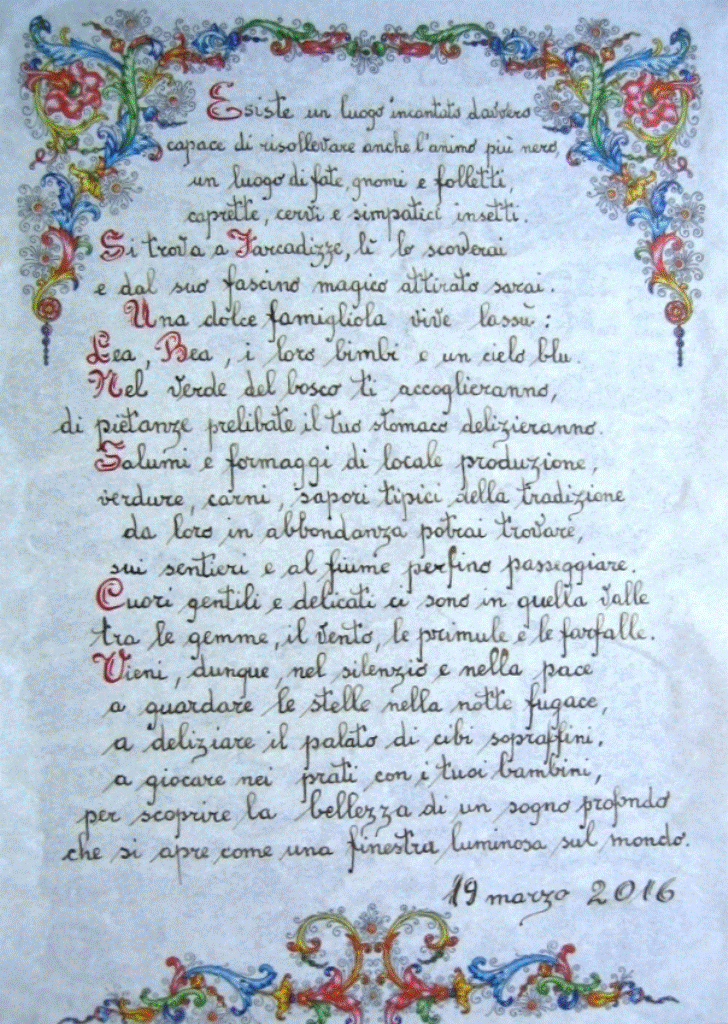 Esiste un luogo incantato davvero
capace di risollevare anche l'animo più nero,
un luogo di fate, gnomi e folletti,
caprette, cervi e simpatici insetti.
Si trova a Farcadizze, lì lo scoverai
e dal suo fascino magico attirato sarai.
Una dolce famigliola vive lassù:
Lea, Bea, i loro bimbi e un cielo blu.
Nel verde del bosco ti accoglieranno,
di pietanze prelibate il tuo stomaco delizieranno.
Salumi e formaggi di locale produzione,
verdure, carni, sapori tipici della tradizione
da loro in abbondanza potrai trovare,
sui sentieri e al fiume perfino passeggiare.
Cuori gentili e delicati ci sono in quella valle
tra le gemme, il vento, le primule e le farfalle.
Vieni, dunque, nel silenzio e nella pace
a guardare le stelle nella notte fugace,
a deliziare il palato di cibi sopraffini,
a giocare nei prati con i tuoi bambini,
per scoprire la bellezza di un sogno profondo
che si apre come una finestra luminosa sul mondo.
19 marzo 2016